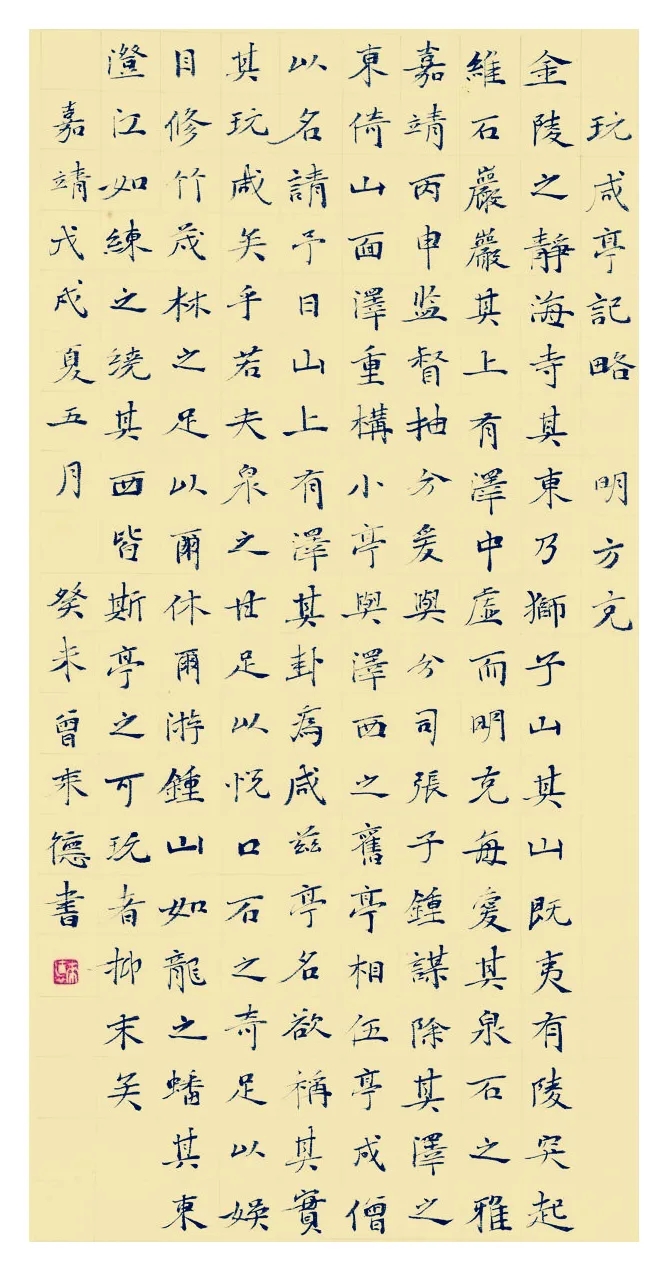 玩咸亭記略 明方克
金陵之靜海寺其東乃獅子山其山既夷有陵突起
維石巖巖其上有澤中虛而明克每愛其泉石之雅
嘉靖丙申监督抽分爰與分司張子鍾謀除其澤之
東倚山面澤重構小亭與澤西之舊亭相伍亭成僧
以名請予曰山上有澤其卦為咸兹亭名欲稱其實
其玩咸矣乎若夫泉之甘足以悦口石之奇足以娱
目修竹茂林之足以爾休爾游鍾山如龍之蟠其東
澄江如練之繞其西皆斯亭之可玩者抑末矣
嘉靖戊戌夏五月 癸未曾来德書